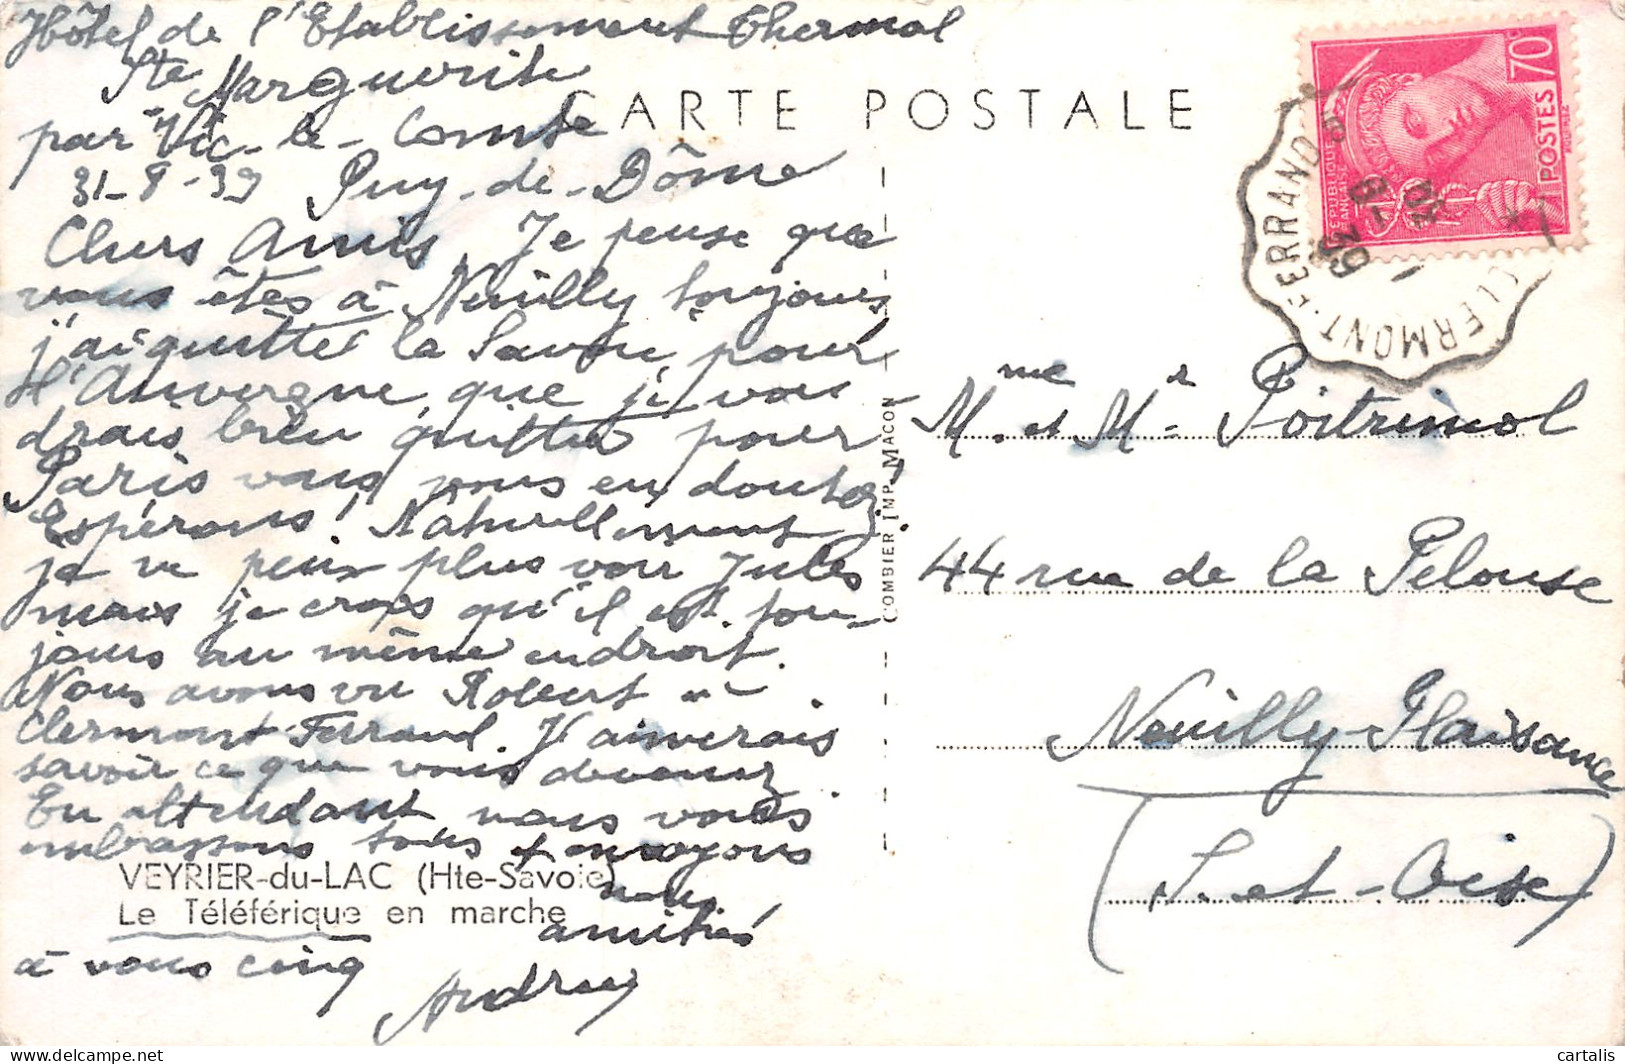 Hôtel de l'Etablissement Thermal
Ste Marguerite
par Vic-le-Comte
31-8-39 Puy-de-Dôme
CARTE POSTALE
Chers Amis, Je pense que
vous êtes à Neuilly toujours
j'ai quitté la Savoie pour
l'Auvergne, que je vou
drais bien quitter pour
Paris vous vous en doutez!
Espérons! Naturellement
je ne peux plus voir Jules
mais je crois qu'il est tou-
jours au même endroit.
Nous avons vu Robert
Clermont-Ferrand. J'aimerais
savoir ce que vous devenez
En attendant nous vous
embrassons tous et envoyons
nous
amitiés
à vous cinq
VEYRIER-du-LAC (Hte-Savoie)
Le Téléférique en marche
COMBIER IMP. MACON
REPUBLIQUE
FRANÇAISE
POSTES 70c
CLERMONT-FERRAND
39
Mme et Mr Poitrimol
44 rue de la Pelouse
Neuilly-Plaisance
(S.-et-Oise)
cartalis